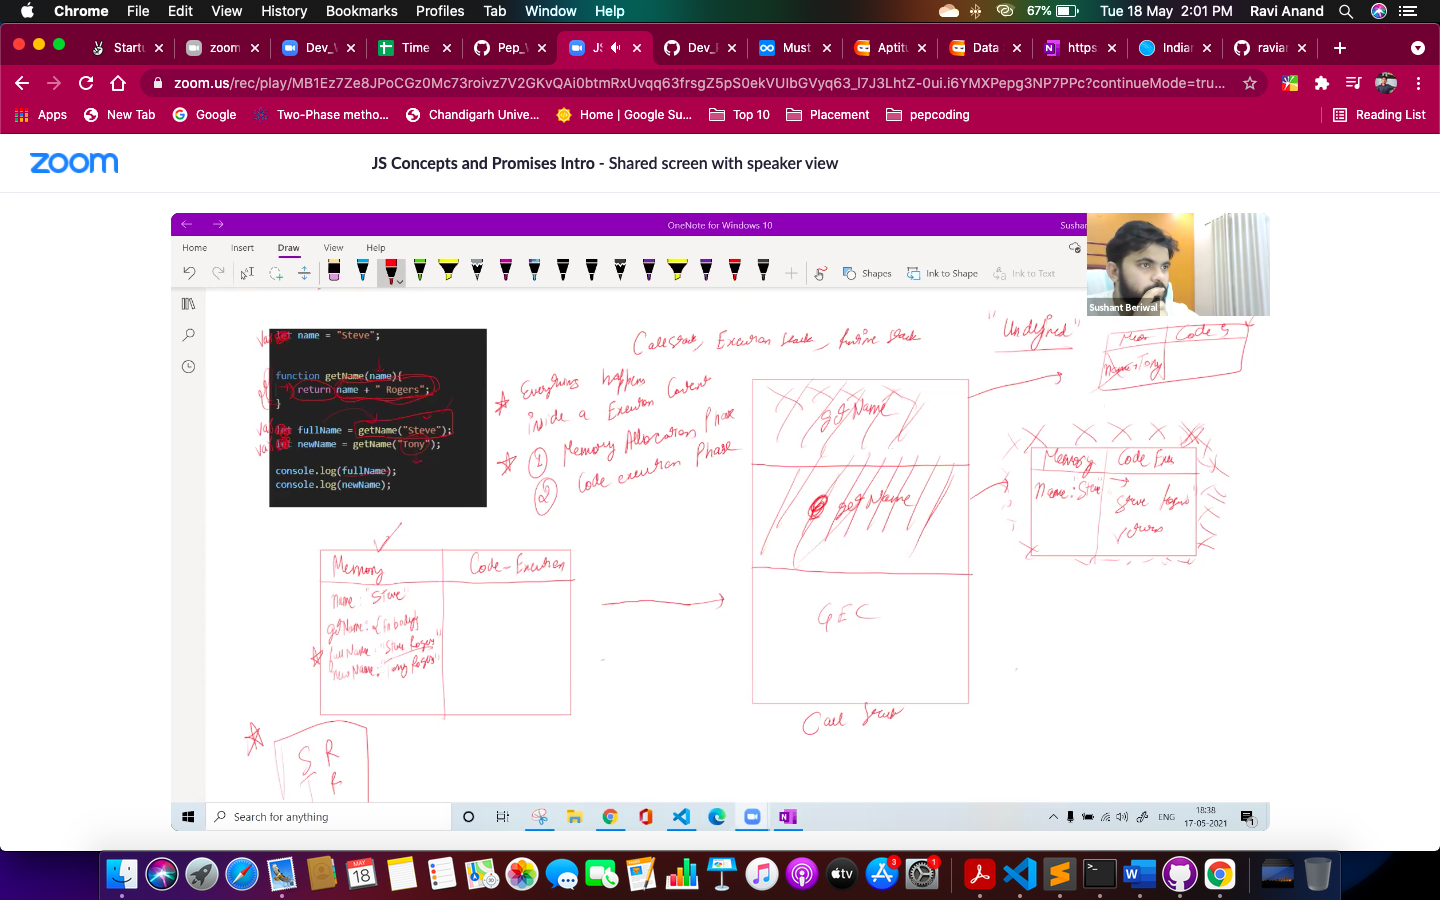 Chrome File Edit View History Bookmarks Profiles Tab Window Help 67% Tue 18 May 2:01 PM Ravi Anand
Startu zoom Dev_ Time Pep_ JS Dev_ Must Aptitu Data https Indian raviar
zoom.us/rec/play/MB1Ez7Ze8JPoCGz0Mc73roivz7V2GKvQAi0btmRxUvqq63frsgZ5pS0ekVUIbGVyq63_I7J3LhtZ-0ui.i6YMXPepg3NP7PPc?continueMode=tru...
Apps New Tab Google Two-Phase metho... Chandigarh Unive... Home | Google Su... Top 10 Placement pepcoding Reading List
zoom
JS Concepts and Promises Intro - Shared screen with speaker view
OneNote for Windows 10
Susha
Home Insert Draw View Help
Shapes Ink to Shape Ink to Text
Sushant Beriwal
name = "Steve";
function getName(name){
return name + " Rogers";
}
fullName = getName("Steve");
newName = getName("Tony");
console.log(fullName);
console.log(newName);
Everything happens
inside a
① Memory Allocation Phase
② Code execution Phase
"Undefined"
Code
name: Tony
getName
getName
GEC
Call Stack
Memory Code Exe
Name: "Steve"
Memory Code-Execution
name: "Steve"
getName:
fullName: "Steve Rogers"
newName: "Tony Rogers"
S R
T R
Search for anything
ENG
18:38
17-05-2021
1
MAY
18
3
1
tv